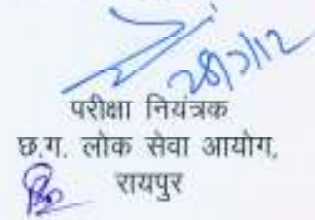 28/7/12
परीक्षा नियंत्रक
छ.ग. लोक सेवा आयोग,
रायपुर